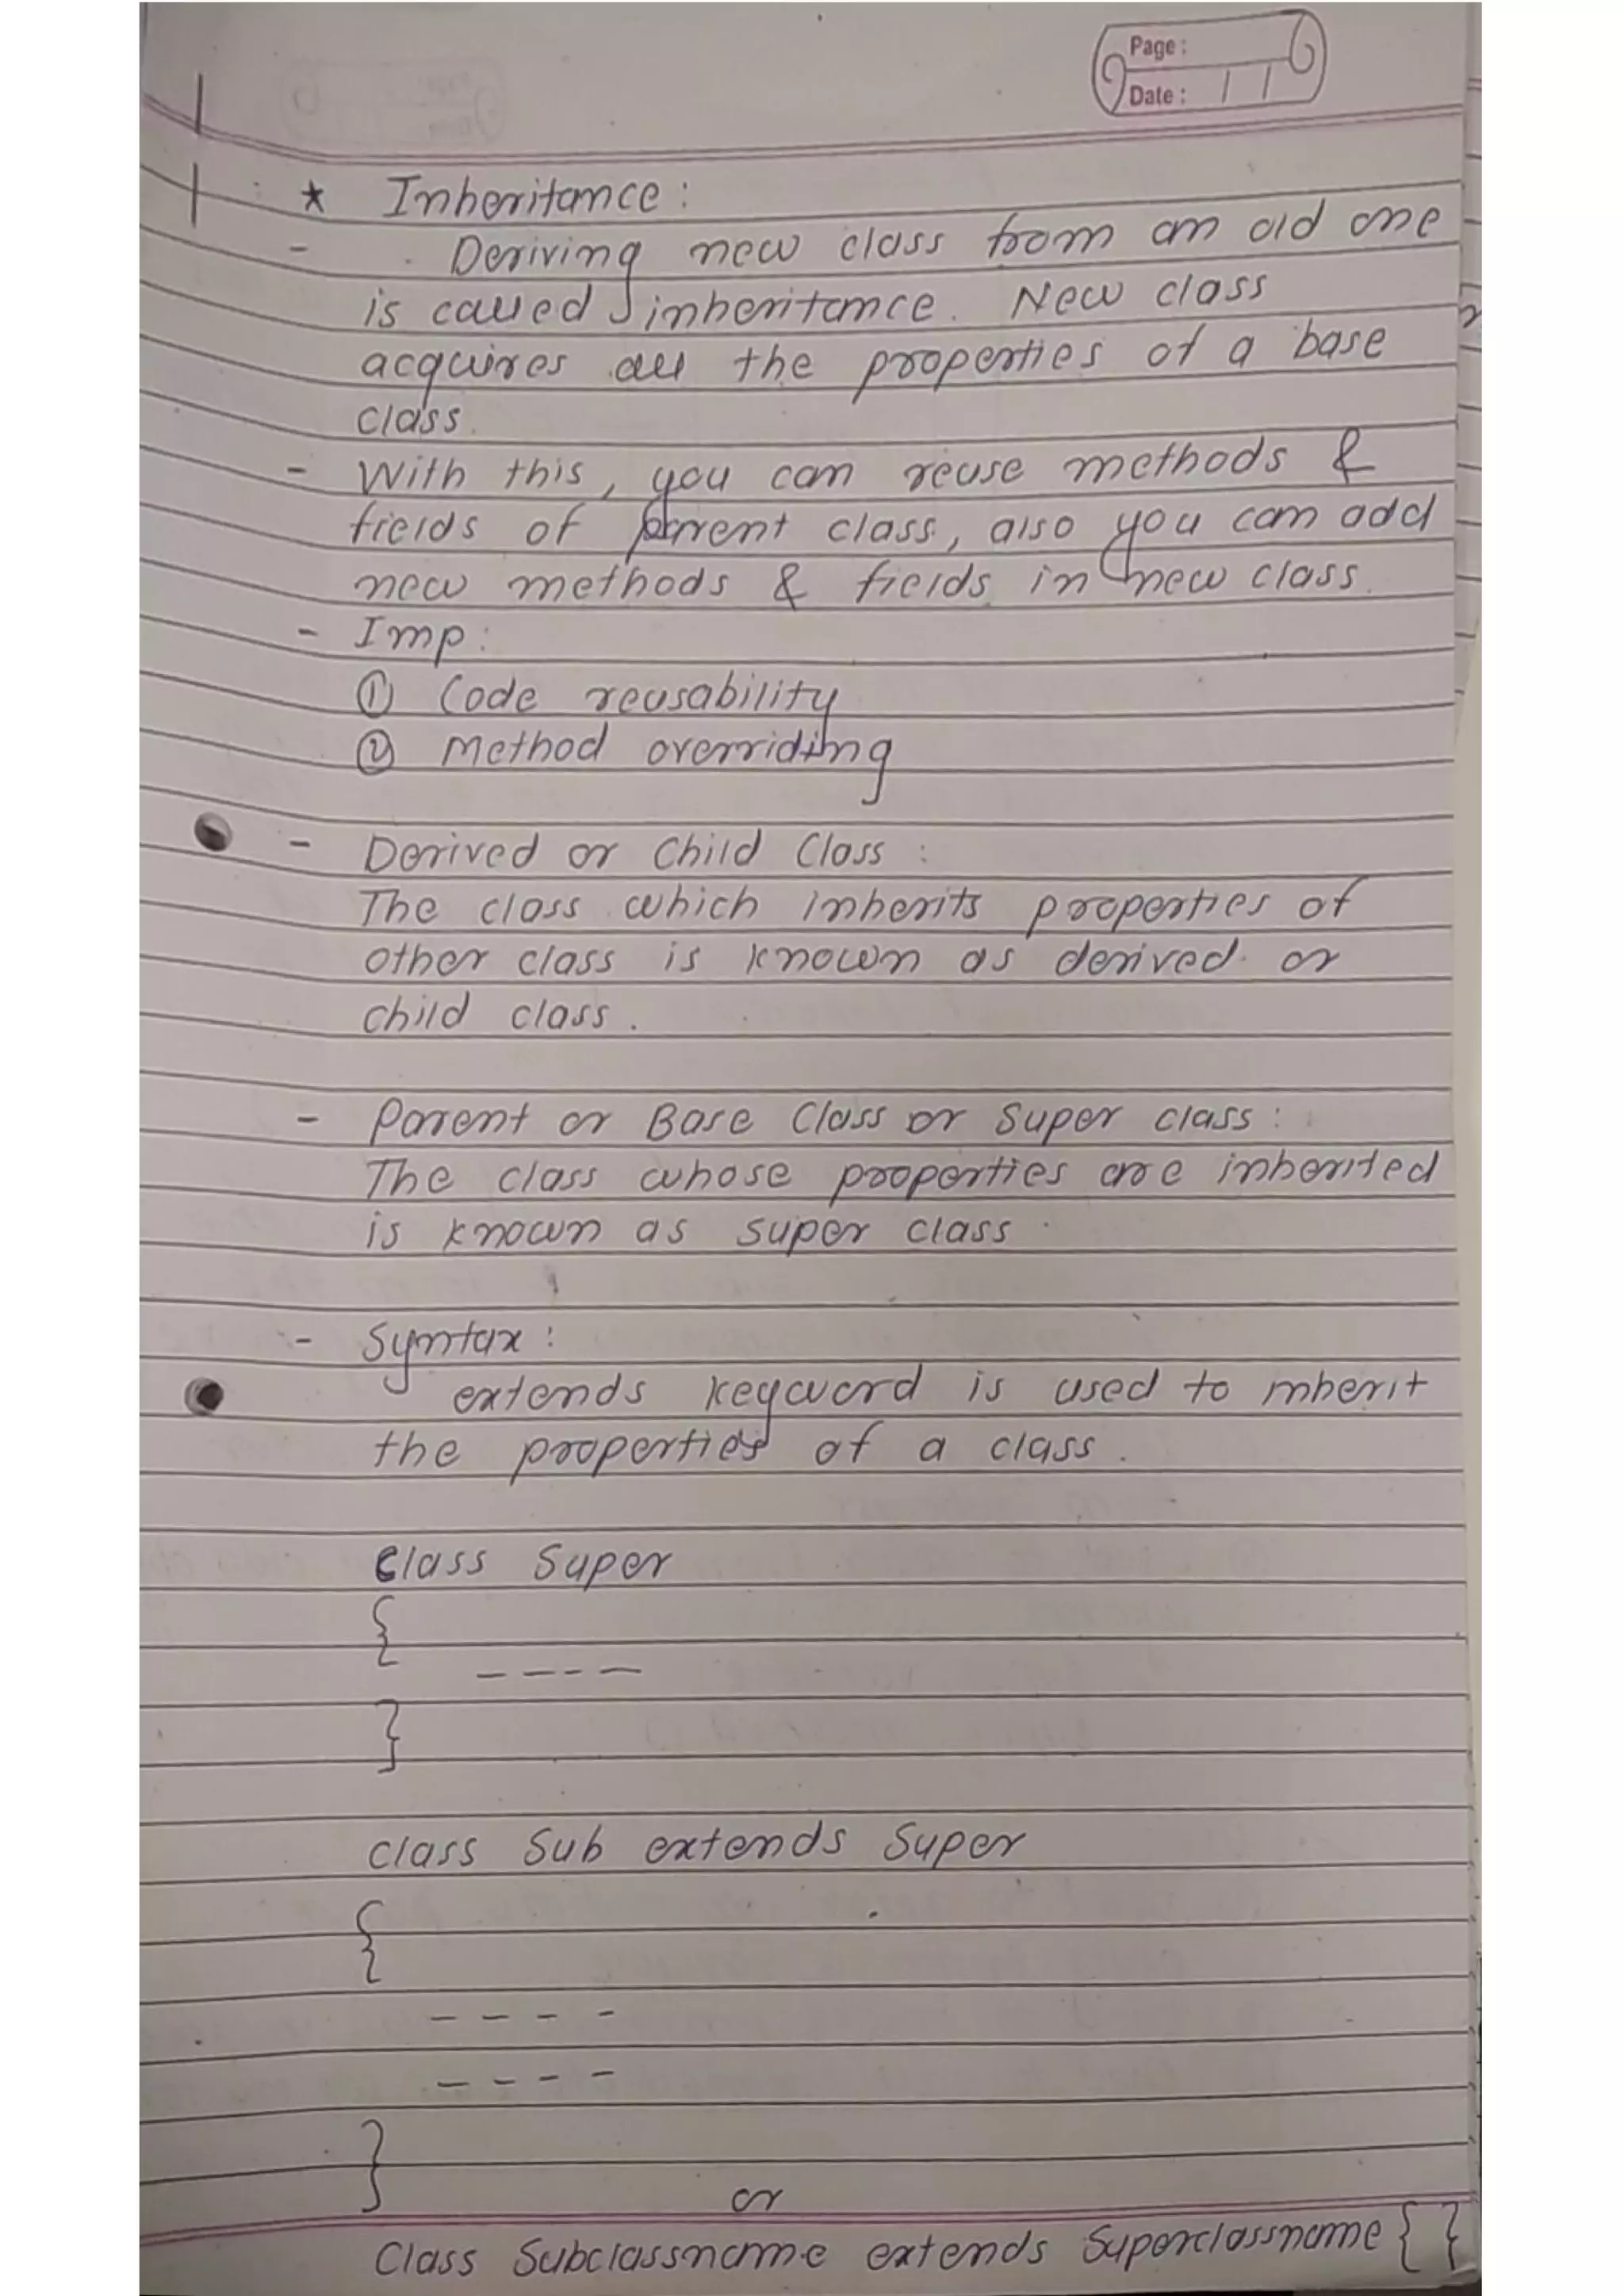 Page :
Date : / /
* Inheritance :
- Deriving new class from an old one
is called inheritance. New class
acquires all the properties of a base
class.
- With this, you can reuse methods &
fields of parent class, also you can add
new methods & fields in new class.
- Imp:
① Code reusability
② Method overriding
- Derived or Child Class :
The class which inherits properties of
other class is known as derived or
child class.
- Parent or Base Class or Super class :
The class whose properties are inherited
is known as super class.
- Syntax :
extends keyword is used to inherit
the properties of a class.
Class Super
{
- - - -
}
class Sub extends Super
{
- - - -
- - - -
}
or
Class Subclassname extends Superclassname { }